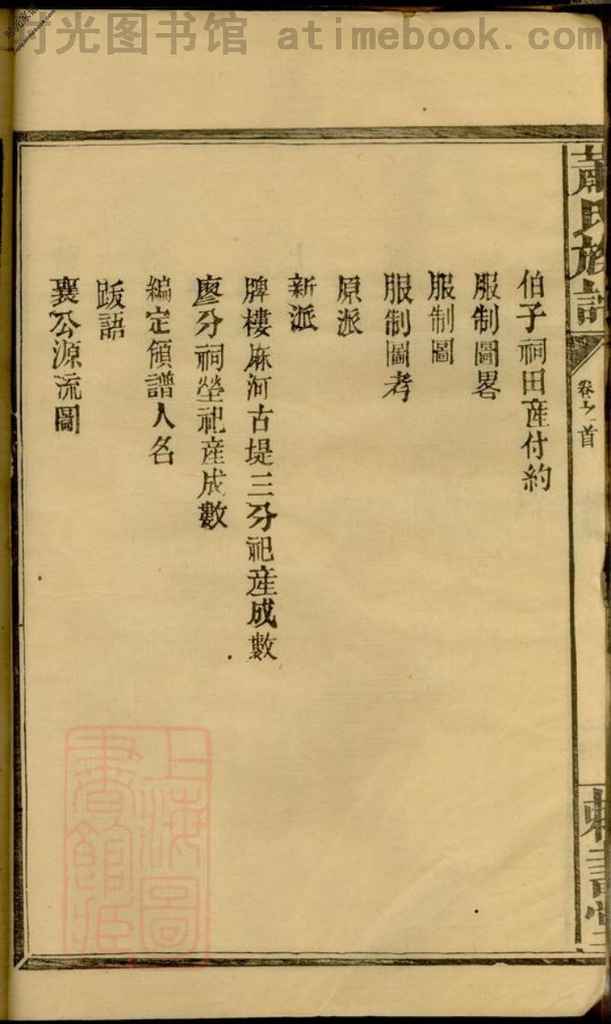 时光图书馆 atimebook.com
蕭氏族譜
卷之首
伯子祠田産付約
服制圖畧
服制圖
服制圖考
原派
新派
牌樓麻河古堤三分祀産成數
廖分祠塋祀産成數
編定領譜人名
跋語
襄公源流圖
上海圖書館藏